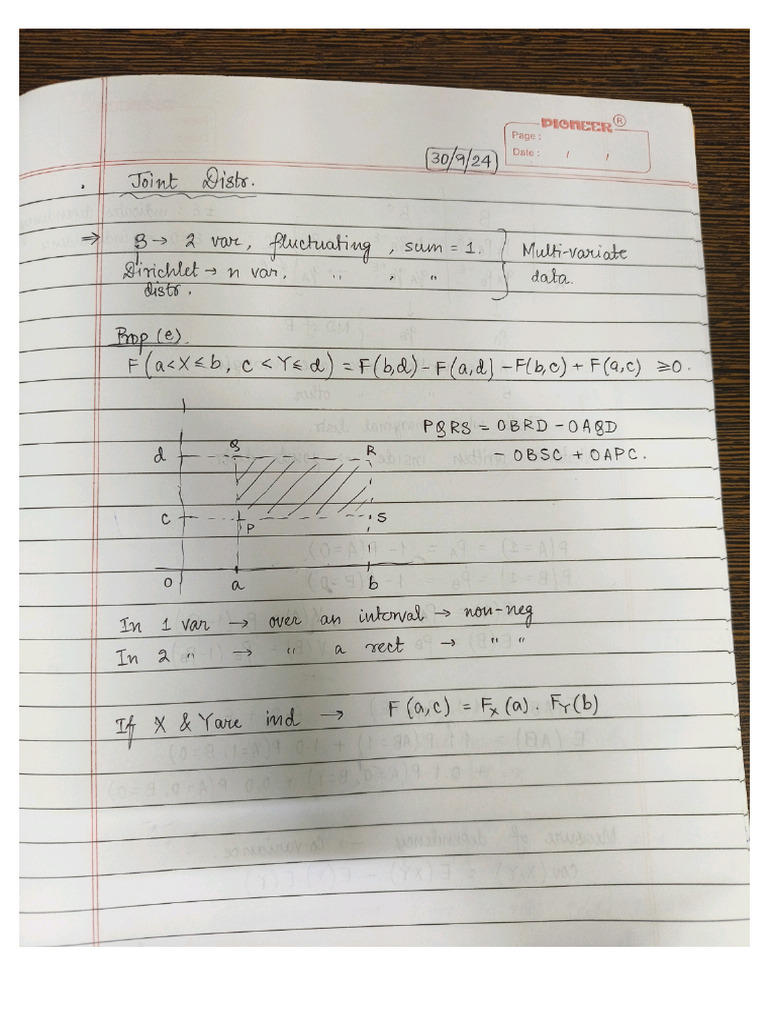 PIONEER ®
Page :
Date : / /
30/9/24
Joint Distr.
⇒ β → 2 var, fluctuating, sum = 1. } Multi-variate
Dirichlet → n var, " , " } data.
distr.
Prop (e).
F(a<X≤b, c<Y≤d) = F(b,d) - F(a,d) - F(b,c) + F(a,c) ≥0.
PQRS = OBRD - OAQD
- OBSC + OAPC.
d Q R
c P S
O a b
In 1 var → over an interval → non-neg
In 2 " → " a rect → " "
If X & Y are ind → F(a,c) = F_X(a). F_Y(b)